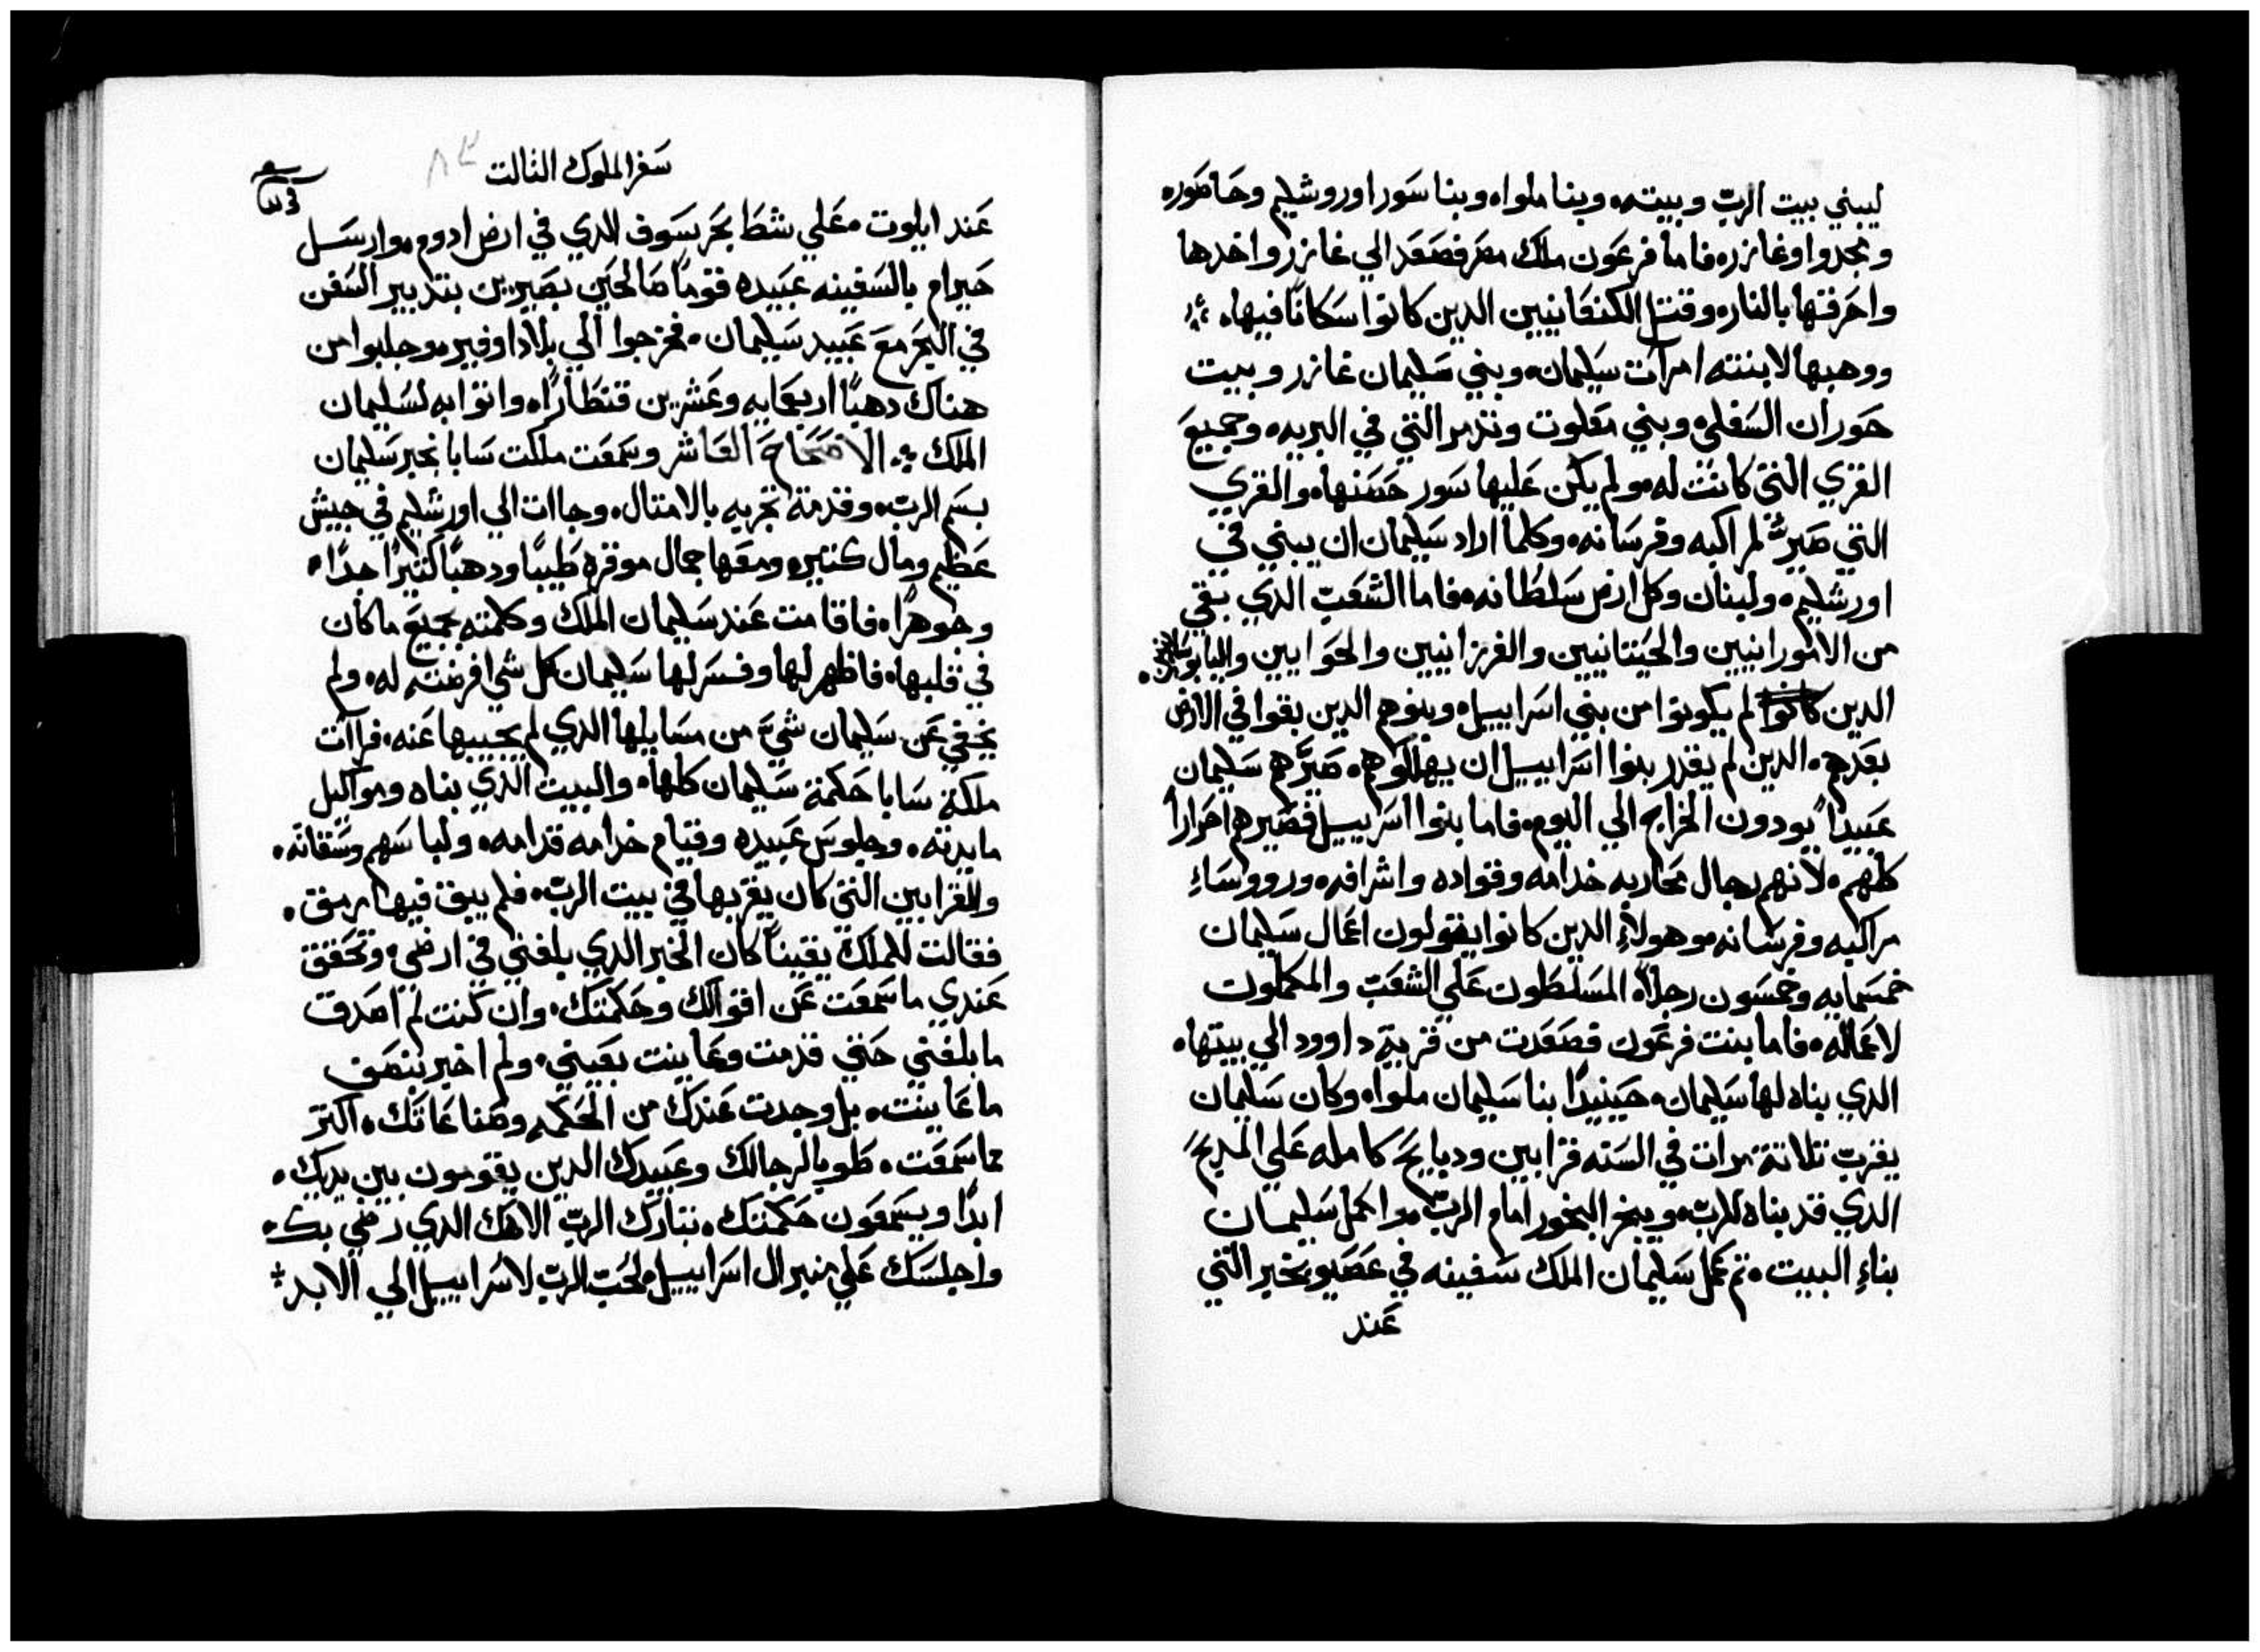 ليبني بيت الرب وبيته. وبنا ملواه وبنا سور اوروشليم وحاصوره
ومجدوا وغازره فاما فرعون ملك مصر فصعد الي غازر واخدها
واحرقها بالناره وقتل الكنعانيين الدين كانوا سكانًا فيها.
ووهبها لابنته امرات سليمان. وبني سليمان غازر وبيت
حوران السفلي. وبني مقلوت وتدمر التي في البريه. وجميع
القري التي كانت له. ولم يكن عليها سور حصنها. والقري
التي صير لمراكبه وفرسانه. وكلما اراد سليمان ان يبني في
اورشليم. ولبنان وكل ارض سلطانه. فاما الشعب الدي بقي
من الامورانيين والحيتانيين والفرزانيين والحوايين واليابوسانيين.
الدين كانوا لم يكونوا من بني اسراييل. وبنوهم الدين بقوا في الارض
بعدهم. الدين لم يقدر بنوا اسراييل ان يهلكوهم. صيرهم سليمان
عبيدًا يودون الخراج الي اليوم. فاما بنوا اسرييل فصيرهم احرارًا
كلهم. لانهم رجال محاربه خدامه وقواده واشرافه. ورووساء
مراكبه وفرسانه. وهولاء الدين كانوا يتولون اعمال سليمان
خمسمايه وخمسون رجلاً. المسلطون علي الشعب والمكملون
لاعماله. فاما بنت فرعون فصعدت من قرية داوود الي بيتها.
الدي بناه لها سليمان. حينيدًا بنا سليمان ملواه وكان سليمان
يقرب تلاتة مرات في السنه قرابين ودبايح كامله علي المدبح
الدي قد بناه للرب. ويبخر البخور امام الرب. واكمل سليمان
بناء البيت. تم عمل سليمان الملك سفينه في عصيونجبر التي
عند
سفر الملوك التالت ٨٣
عند ايلوت. علي شط بحر سوف الدي في ارض ادوم. وارسل
حيرام بالسفينه عبيده قومًا صالحين بصيرين بتدبير السفن
في البحر مع عبيد سليمان. فخرجوا الي بلاد اوفير. وجلبوا من
هناك دهبًا اربعمايه وعشرين قنطارًا. واتوا به لسليمان
الملك. الاصحاح العاشر وسمعت ملكت سابا بخبر سليمان
بسم الرب. وقدمة تجربه بالامتال. وجاات الي اورشليم في جيش
عظيم ومال كتير. ومعها جمال موقره طيبًا ودهبًا كتيرًا جدًا.
وجوهرًا. فاقامت عند سليمان الملك وكلمته بجميع ما كان
في قلبها. فاظهر لها وفسر لها سليمان كل شي افرضته له. ولم
يخفي عن سليمان شي من مسايلها الدي لم يجيبها عنه. فراات
ملكة سابا حكمة سليمان كلها. والبيت الدي بناه ومواكيل
مايدته. وجلوس عبيده وقيام خدامه قدامه. ولباسهم وسقاته.
والقرابين التي كان يقربها في بيت الرب. فلم يبق فيها رمق.
فقالت للملك يقينًا كان الخبر الدي بلغني في ارضي. وتحقق
عندي ما سمعت عن اقوالك وحكمتك. وان كنت لم اصدق
ما بلغني حتي قدمت وعاينت بعيني. ولم اخبر بنصف
ما عاينت. بل وجدت عندك من الحكمه وصناعاتك. اكتر
مما سمعت. طوبا لرجالك وعبيدك الدين يقومون بين يديك.
ابدًا ويسمعون حكمتك. تبارك الرب الاهك الدي رضي بك.
واجلسك علي منبر ال اسراييل. لحب الرب لاسراييل الي الابد